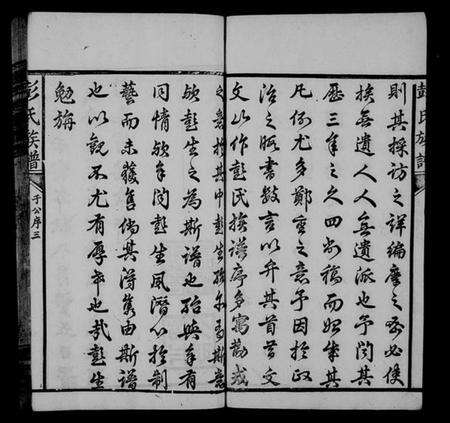 則其採訪之詳編摩之密必使
族無遺人人無遺派也予閱其
歷三年之之四易稿而始成其
凡例尤多鄭重之意予因於政
治之暇書數言以弁其首昔文
文山作彭氏族譜序多寓勸戒
之意於其中彭生
欲彭生之為斯譜也殆與余有
同情歟余聞彭生夙潛心於制
藝而未獲售倘其得雋由斯譜
也以觀不尤有厚幸也哉彭生
勉旃
彭氏族譜
于公序三
彭氏族譜